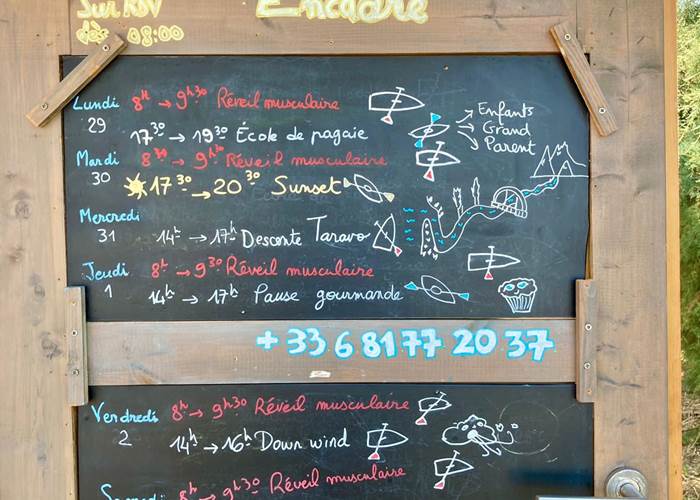 Sur RDV
dès 08:00
Encadré
Lundi 8h → 9h30 Réveil musculaire
29
17 30 → 19 30 École de pagaie
Enfants
Grand
Parent
Mardi 8 30 → 9h30 Réveil musculaire
30
17 30 → 20 30 Sunset
Mercredi
31 14h → 17h Descente Taravo
Jeudi 8h → 9 30 Réveil musculaire
1
14h → 17h Pause gourmande
+33 6 81 77 20 37
Vendredi 8h → 9h30 Réveil musculaire
2
14h → 16h Down wind
8h → 9h30 Réveil musculaire